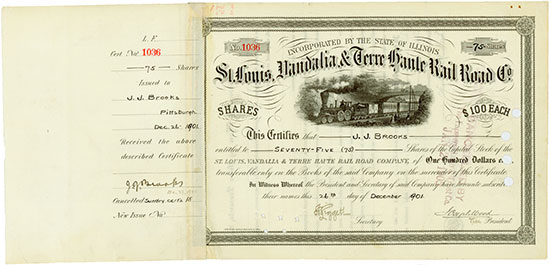 L. F.
Cert. No. 1036
—75— Shares
Issued to
J. J. Brooks
Pittsburgh
Dec. 26th 1901
Received the above
described Certificate
J. J. Brooks
Cancelled
New Issue No.
No. 1036
INCORPORATED BY THE STATE OF ILLINOIS
—75—
St. Louis, Vandalia & Terre Haute Rail Road Co.
SHARES
$100 EACH
This Certifies that J. J. BROOKS
entitled to SEVENTY-FIVE (75) Shares of the Capital Stock of the
ST. LOUIS, VANDALIA & TERRE HAUTE RAIL ROAD COMPANY, of One Hundred Dollars
transferable only on the Books of the said Company on the surrender of this Certificate
In Witness Whereof the President and Secretary of said Company have hereunto subscribed
their names this 26th day of December 1901.
Secretary
Vice President